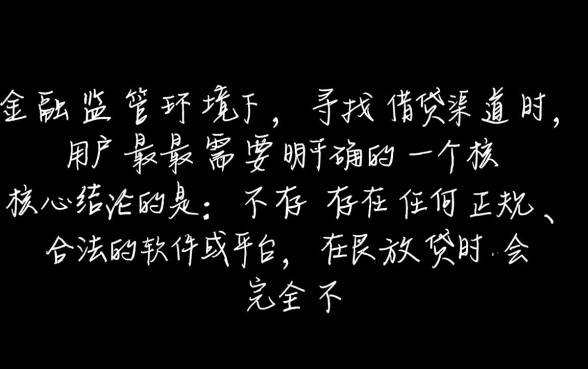 金融监管环境下，寻找借贷渠道时，
用户最最需要明确的一个核
核心结论的是：不存 存在任何正规、
合法的软件或平台，在民放贷时会
完全不